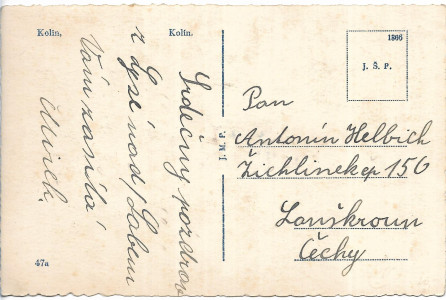 Kolín.
Kolín.
1866
J. Š. P.
I M P
47a
Srdečný pozdrav
z Lysé nad/Labem
Vám zasílá
Mirek.
Pan
Antonín Helbich
Žichlinek čp 156
Lanškroun
Čechy